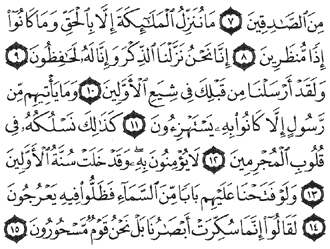 مِنَ ٱلصَّـٰدِقِينَ ٧ مَا نُنَزِّلُ ٱلْمَلَـٰٓئِكَةَ إِلَّا بِٱلْحَقِّ وَمَا كَانُوٓا۟
إِذًا مُّنظَرِينَ ٨ إِنَّا نَحْنُ نَزَّلْنَا ٱلذِّكْرَ وَإِنَّا لَهُۥ لَحَـٰفِظُونَ ٩
وَلَقَدْ أَرْسَلْنَا مِن قَبْلِكَ فِى شِيَعِ ٱلْأَوَّلِينَ ١٠ وَمَا يَأْتِيهِم مِّن
رَّسُولٍ إِلَّا كَانُوا۟ بِهِۦ يَسْتَهْزِءُونَ ١١ كَذَٰلِكَ نَسْلُكُهُۥ فِى
قُلُوبِ ٱلْمُجْرِمِينَ ١٢ لَا يُؤْمِنُونَ بِهِۦ وَقَدْ خَلَتْ سُنَّةُ ٱلْأَوَّلِينَ
١٣ وَلَوْ فَتَحْنَا عَلَيْهِم بَابًا مِّنَ ٱلسَّمَآءِ فَظَلُّوا۟ فِيهِ يَعْرُجُونَ
١٤ لَقَالُوٓا۟ إِنَّمَا سُكِّرَتْ أَبْصَـٰرُنَا بَلْ نَحْنُ قَوْمٌ مَّسْحُورُونَ ١٥